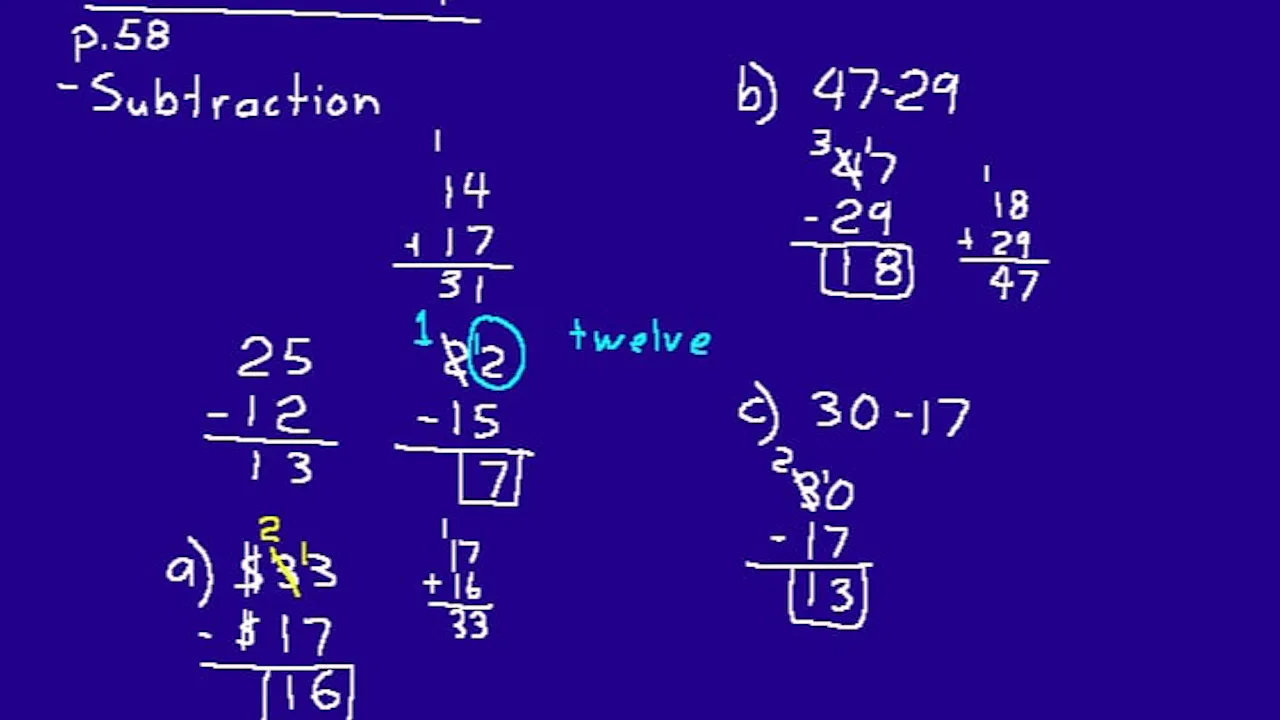 p.58
- Subtraction
1
14
+ 17
31
25
- 12
13
1
2 12
twelve
- 15
7
a)
2
$3 13
- $17
16
1
17
+ 16
33
b) 47-29
3
4 17
- 29
18
1
18
+ 29
47
c) 30-17
2
3 10
- 17
13